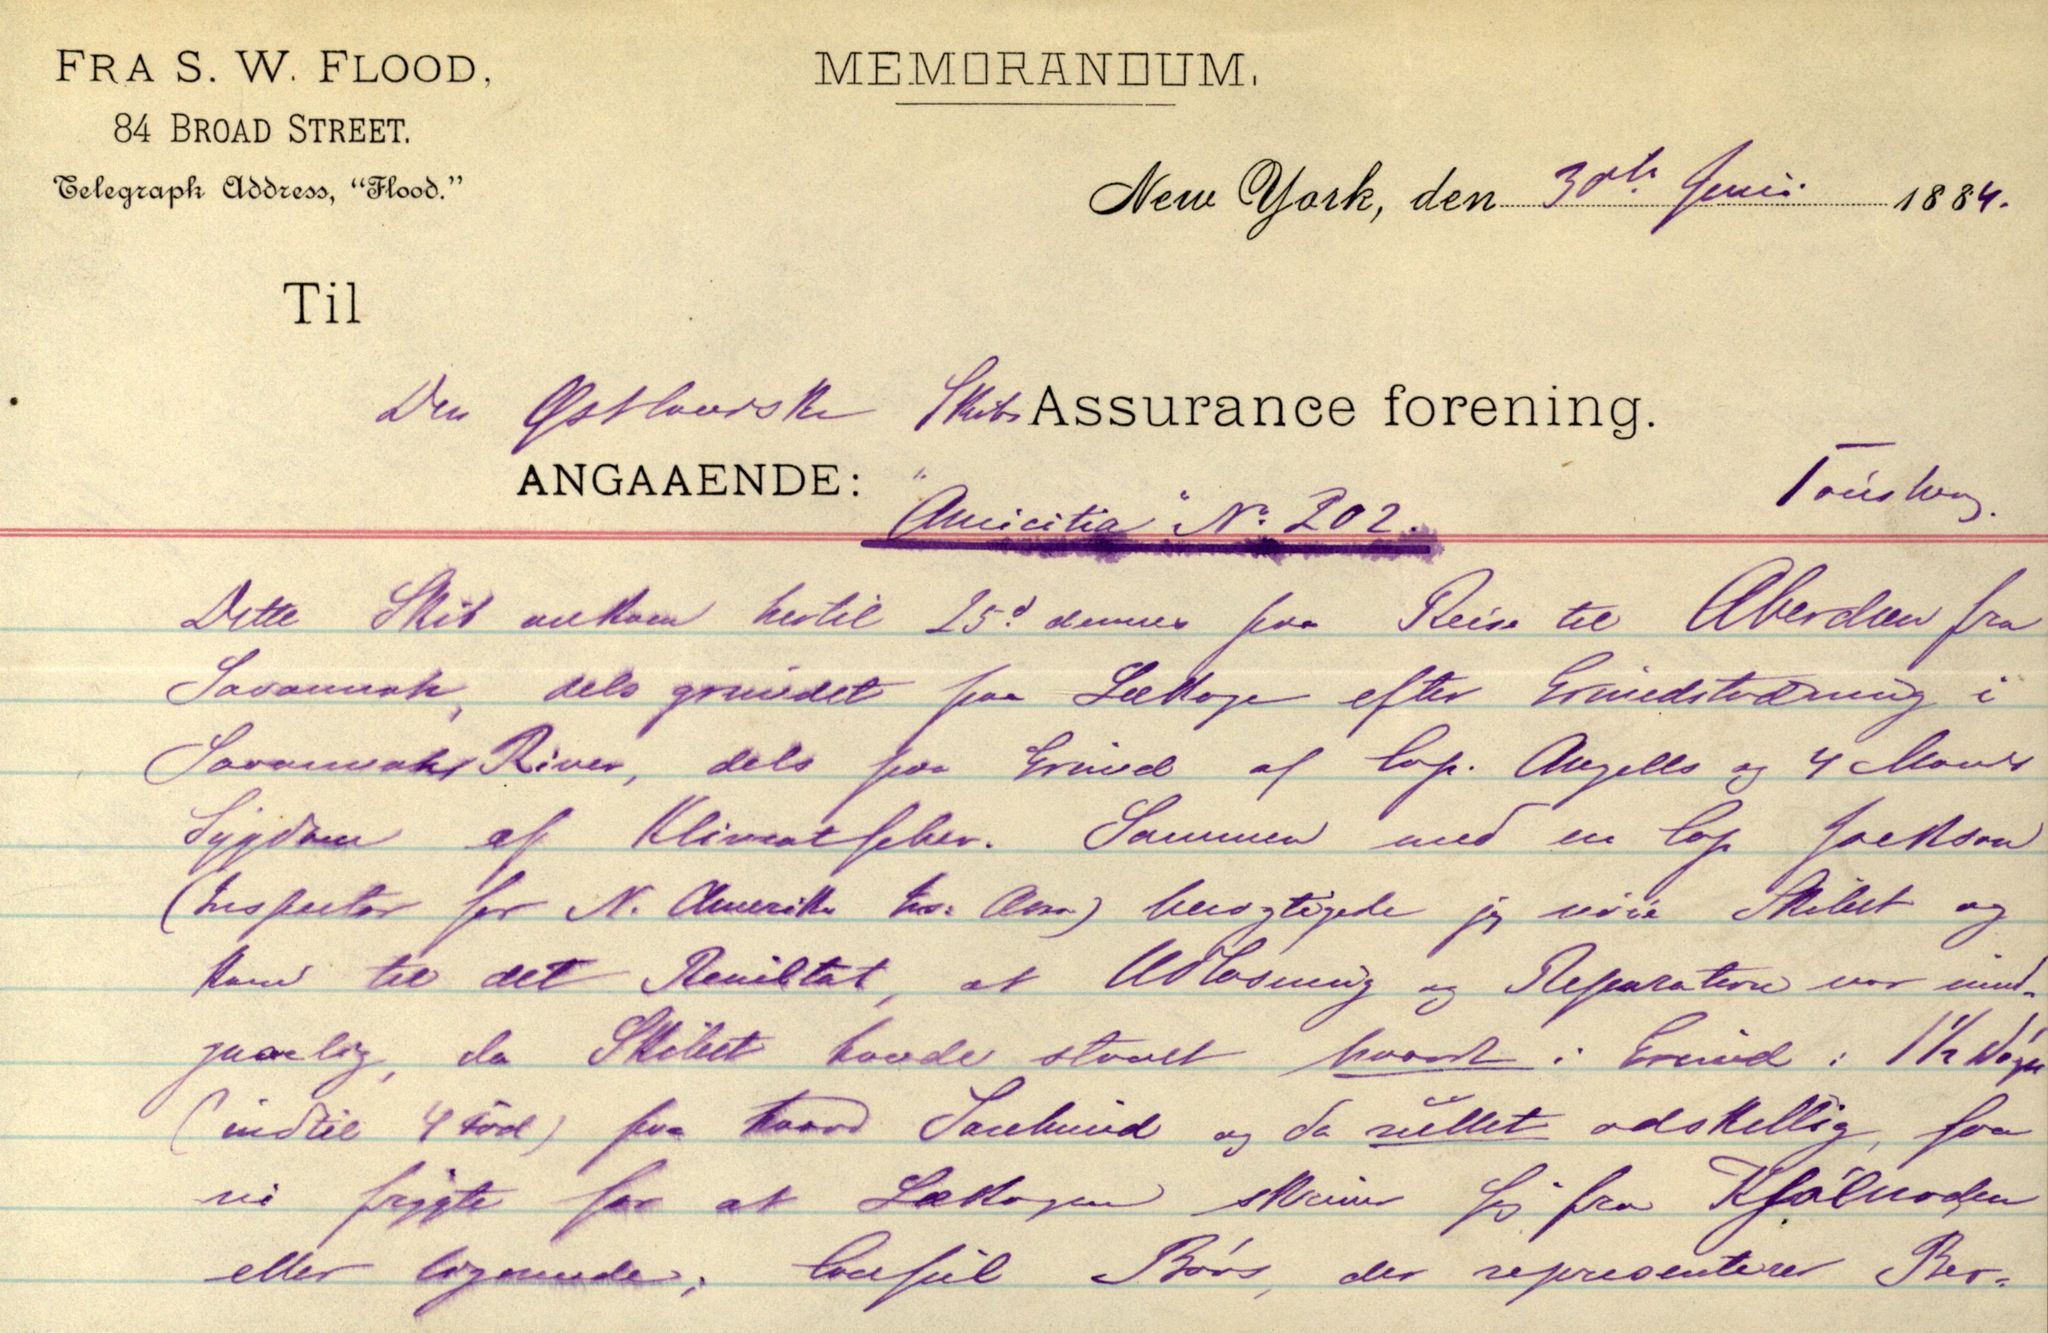 FRA S. W. FLOOD,
84 BROAD STREET.
Telegraph Address, "Flood."
MEMORANDUM.
New York, den 30th Juni 1884.
Til
Den Østlandske Skibs Assurance forening.
Tønsberg.
ANGAAENDE: "Amicitia" No. 202.
Dette Skib ankom hertil 25d dennes paa Reise til Aberdeen fra
Savannah, dels grundet paa Lækage efter Grundstødning i
Savannah River, dels paa Grund af Cap. Angells og 4 Mands
Sygdom af Klimatfeber. Sammen med en Cap Jackson
(Inspector for N. Amerik. Ass) besigtigede jeg Skibet og
kom til det Resultat, at Udlosning og Reparation var und-
gaaelig, da Skibet havde staaet haardt i Grund i 1 1/2 Døgn
(indtil 4 Fod) paa haard Sandbund og da rullet adskillig, saa
vi frygte for at Lækagen skriver sig fra Kjølnaden
eller lignende; Consul Børs, der representerer Ber-